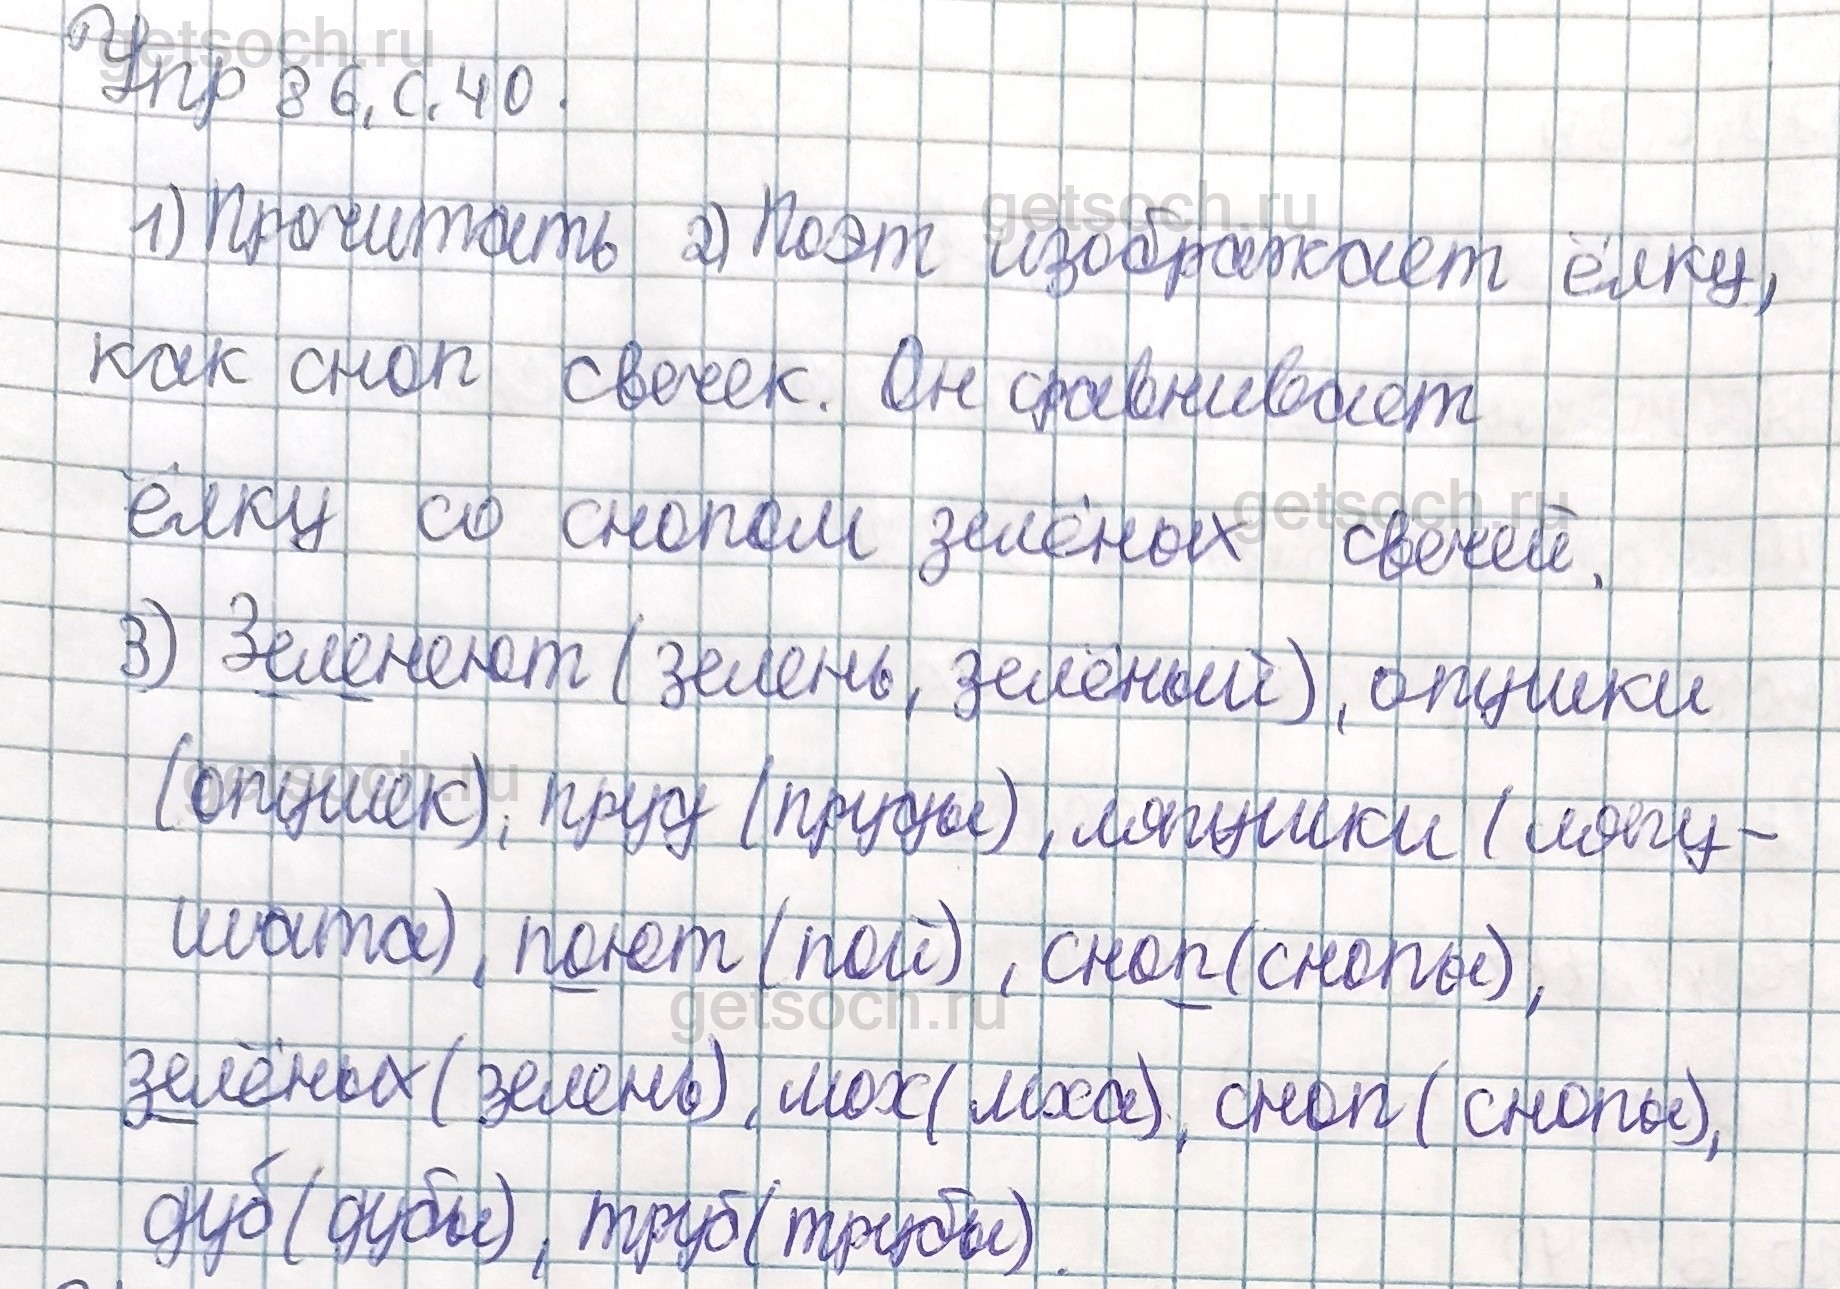 getsoch.ru
Упр 86, с. 40.
1) Прочитать 2) Поэт изображает ёлку,
getsoch.ru
как сноп свечек. Он сравнивает
ёлку со снопом зелёных свечей.
getsoch.ru
3) Зеленеют (зелень, зелёный), опушки
(опушек), пруд (пруды), лягушки (лягу-
getsoch.ru
шата), поют (пой), сноп (снопы),
getsoch.ru
зелёных (зелень), мох (мха), сноп (снопы),
дуб (дубы), труб (трубы).